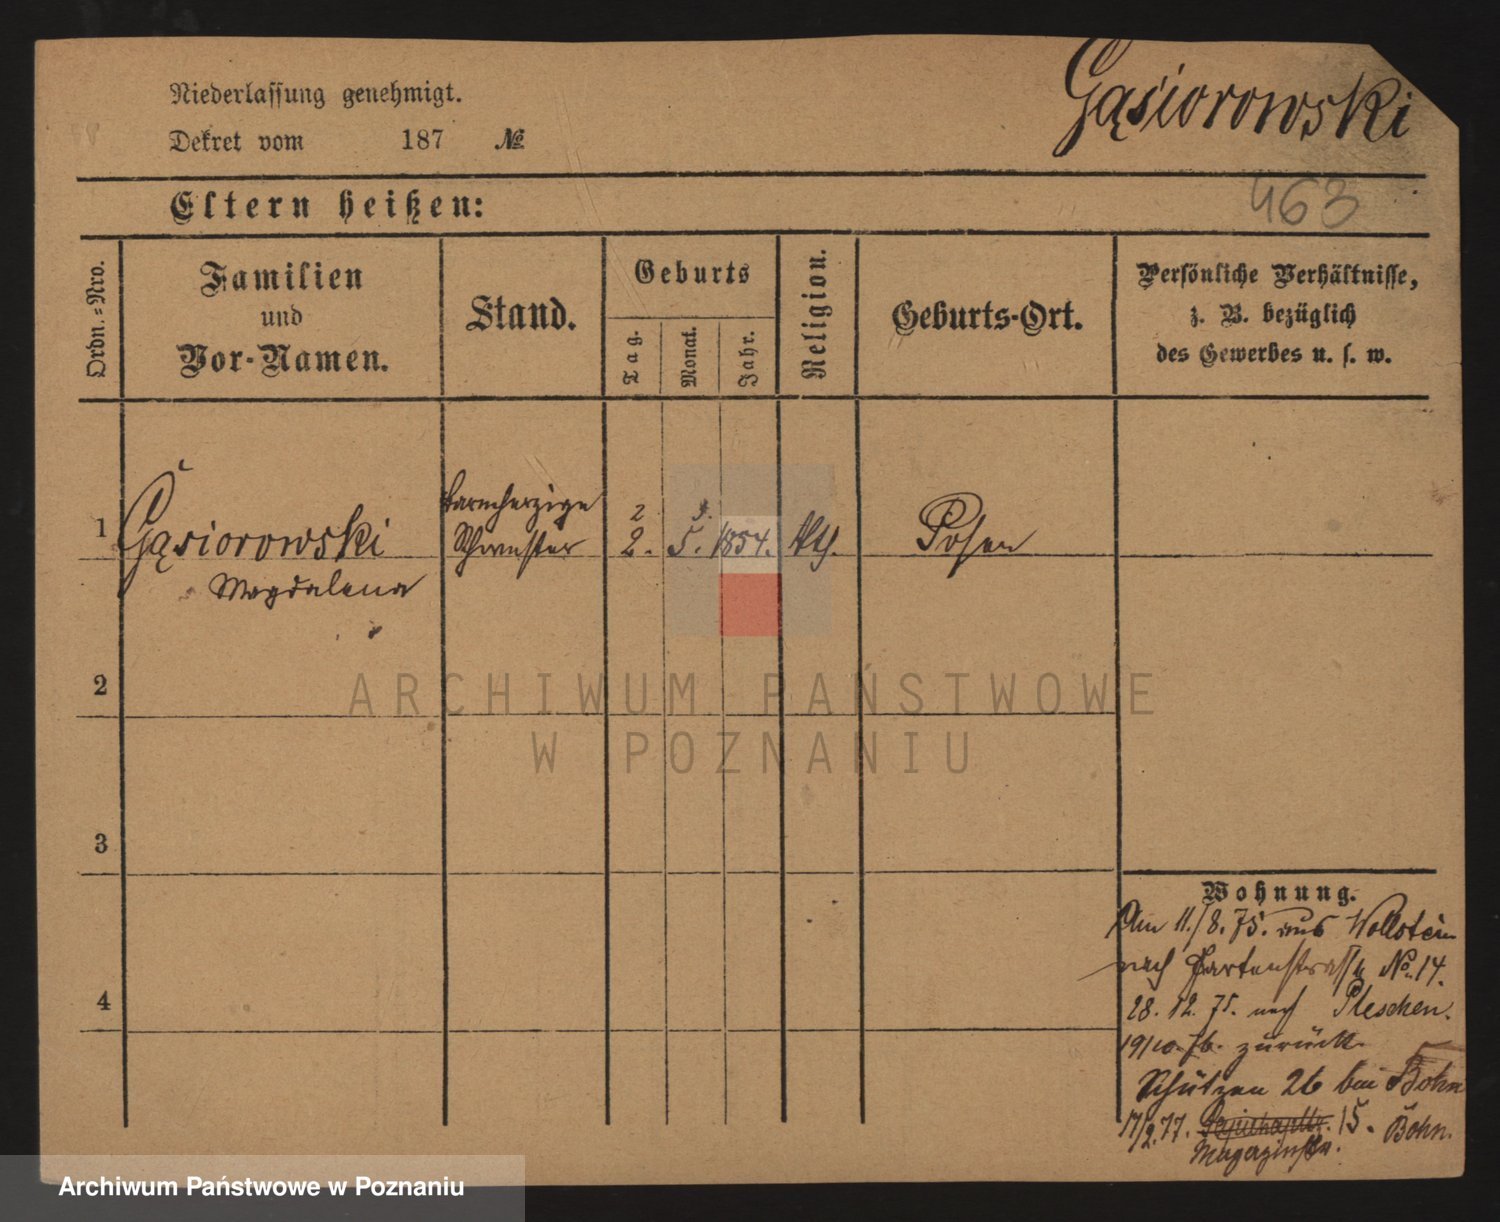 Niederlassung genehmigt.
Gąsiorowski
Dekret vom 187 №
463
Eltern heißen:
Ordn.=Nro.
Familien
und
Vor-Namen.
Stand.
Geburts
Tag.
Monat.
Jahr.
Religion.
Geburts-Ort.
Persönliche Verhältnisse,
z. B. bezüglich
des Gewerbes u. s. w.
1
Gąsiorowski
Magdalena
barmherzige
Schwester
2
2. 5. 1854.
kth.
Posen
2
3
4
Wohnung.
Am 11./8. 75. aus Wollstein
nach Gartenstraße No. 14.
28. 12. 75. nach Pleschen.
19/10. 76. zurück
Schützen 26 bei Bohn
17/2. 77. 15. Bohn.
Magazinstr.
ARCHIWUM PAŃSTWOWE
W POZNANIU
Archiwum Państwowe w Poznaniu